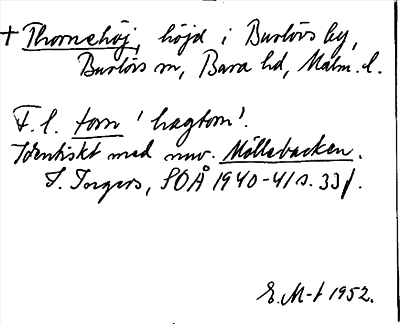 † Thornehöj, höjd i Burlövs by,
Burlövs sn, Bara hd, Malm. l.
F. l. torn 'hagtorn'.
Identiskt med nuv. Möllebacken.
I. Ingers, SOÅ 1940-41 s. 33 f.
E. M-t 1952.